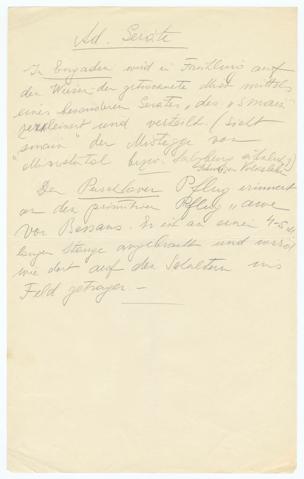 Ad. Geräte
In Engadin wird im Frühling auf
den Wiesen der getrocknete Mist mittels
eines besonderen Gerätes, des "smain"
verkleinert und verteilt (sieht
"smain" der Mistegge von
Salzburg
Der Puschlaver Pflug erinnert
an den primitiven Pflug "araire
von Bessans. Er ist an einer 4-5 m
langen Stange angebracht und wird
wie dort auf den Schultern ins
Feld getragen. —